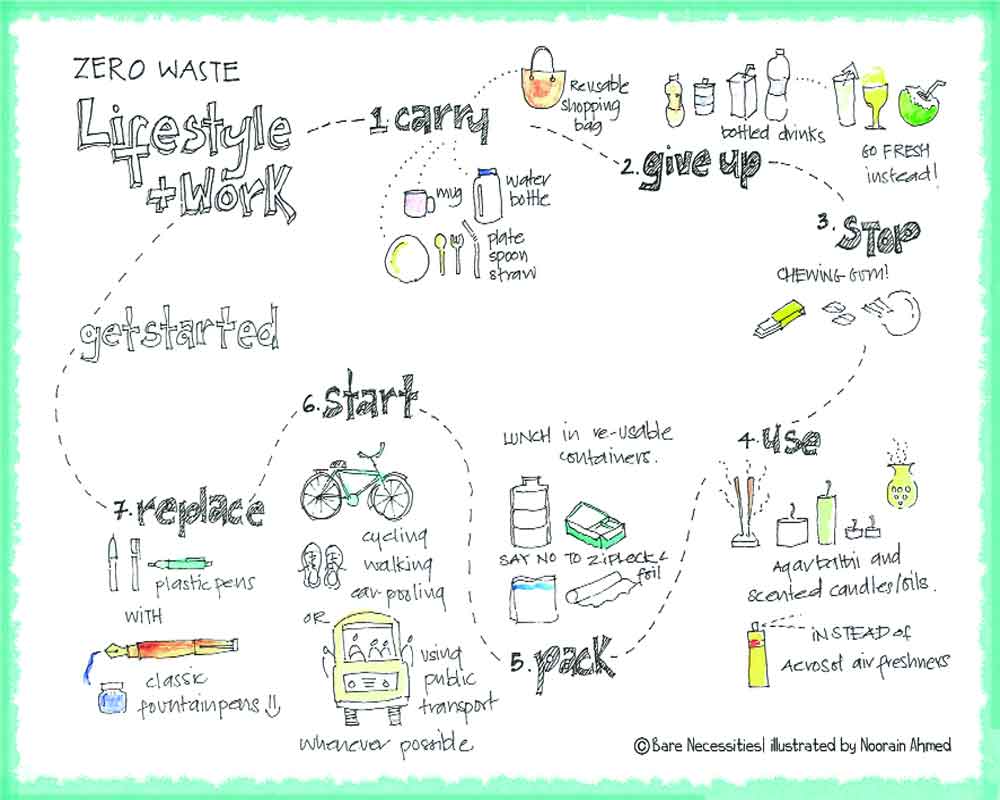 ZERO WASTE
Lifestyle
+ WORK
getstarted
1 carry
Reusable
shopping
bag
mug
water
bottle
plate
spoon
straw
2. give up
bottled drinks
GO FRESH
instead!
3. STOP
CHEWING GUM!
4. use
Agarbathi and
scented candles/oils.
INSTEAD OF
Aerosol air freshners
5. pack
LUNCH in re-usable
containers.
SAY NO TO ZIPLOCK &
foil
6. start
cycling
walking
car pooling
OR
using
public
transport
whenever possible
7. replace
plastic pens
WITH
classic
fountain pens
©Bare Necessities| illustrated by Noorain Ahmed